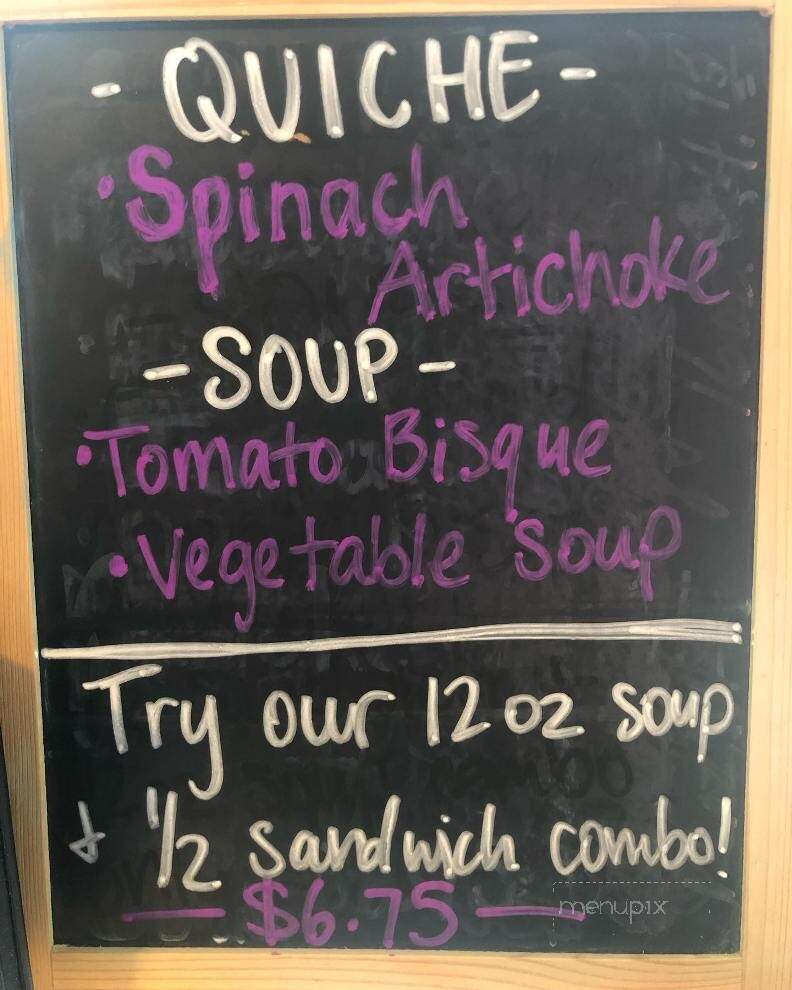 - QUICHE -
• Spinach
Artichoke
- SOUP -
• Tomato Bisque
• Vegetable soup
Try our 12 oz soup
+ 1/2 sandwich combo!
— $6.75 —
menupix